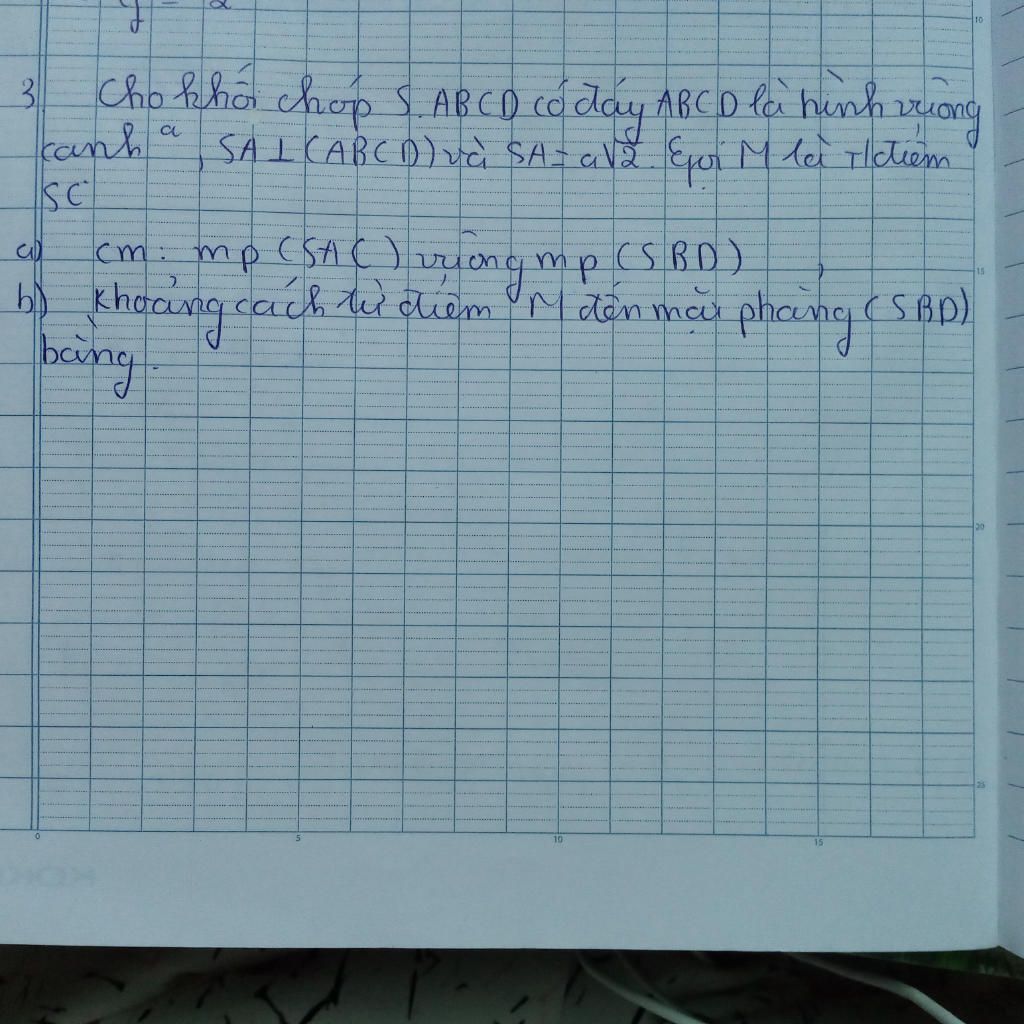 3 Cho khối chóp S.ABCD có đáy ABCD là hình vuông
cạnh a, SA⊥(ABCD) và SA = a√2. Gọi M là T/điểm
SC
a) cm: mp (SAC) vuông mp (SBD)
b) Khoảng cách từ điểm M đến mặt phẳng (SBD)
bằng.
10
15
20
25
0 5 10 15